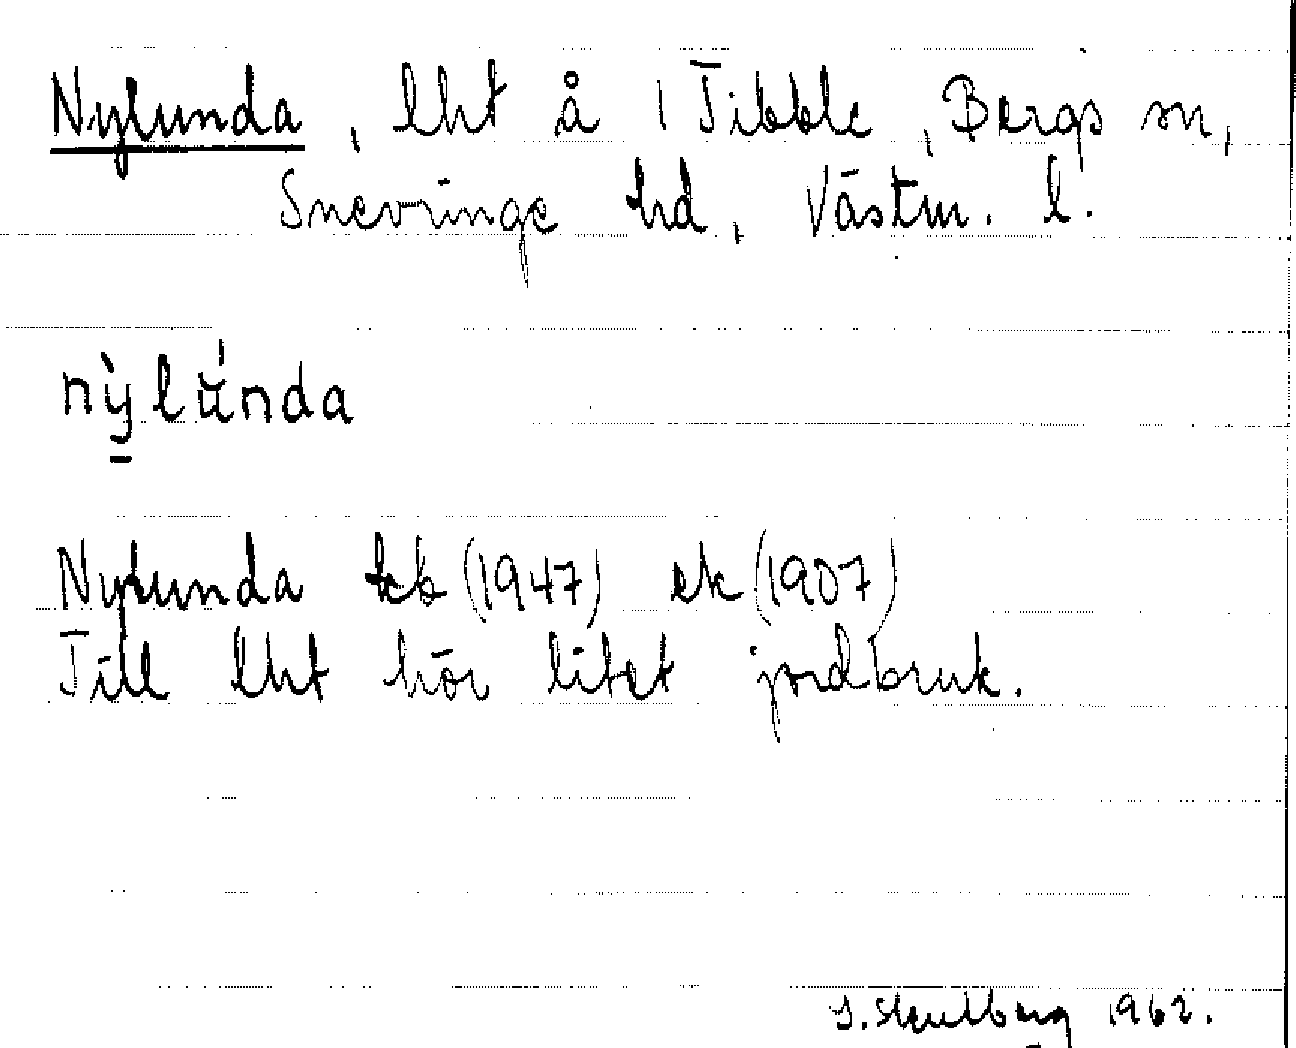 Nylunda, lht å 1 Tibble, Bergs sn,
Snevringe hd, Västm. l.
nỳlúnda
Nylunda kb (1947) ek (1907)
Till lht hör litet jordbruk.
1962.